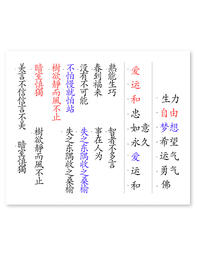 生力
自由
梦想
希望
运气
勇气
佛
爱
运
和
忠
如意
永久
爱
运
和
熟能生巧
春到福来
沒有不可能
不怕慢就怕站
樹欲靜而風不止
暗室慎獨
美言不信信言不美
智者不多言
事在人为
失之东隅收之桑榆
失之东隅收之桑榆
樹欲靜而風不止
暗室慎獨